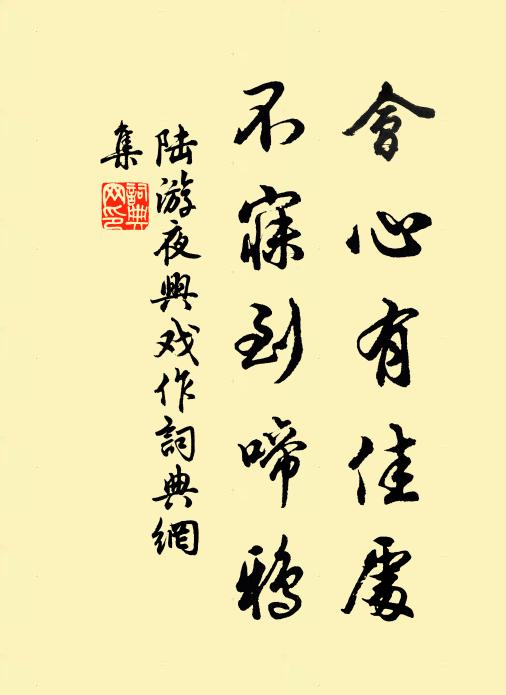 會心有佳處
不寐到啼鴉
陸游夜興戏作詞典網
集
詞典网印